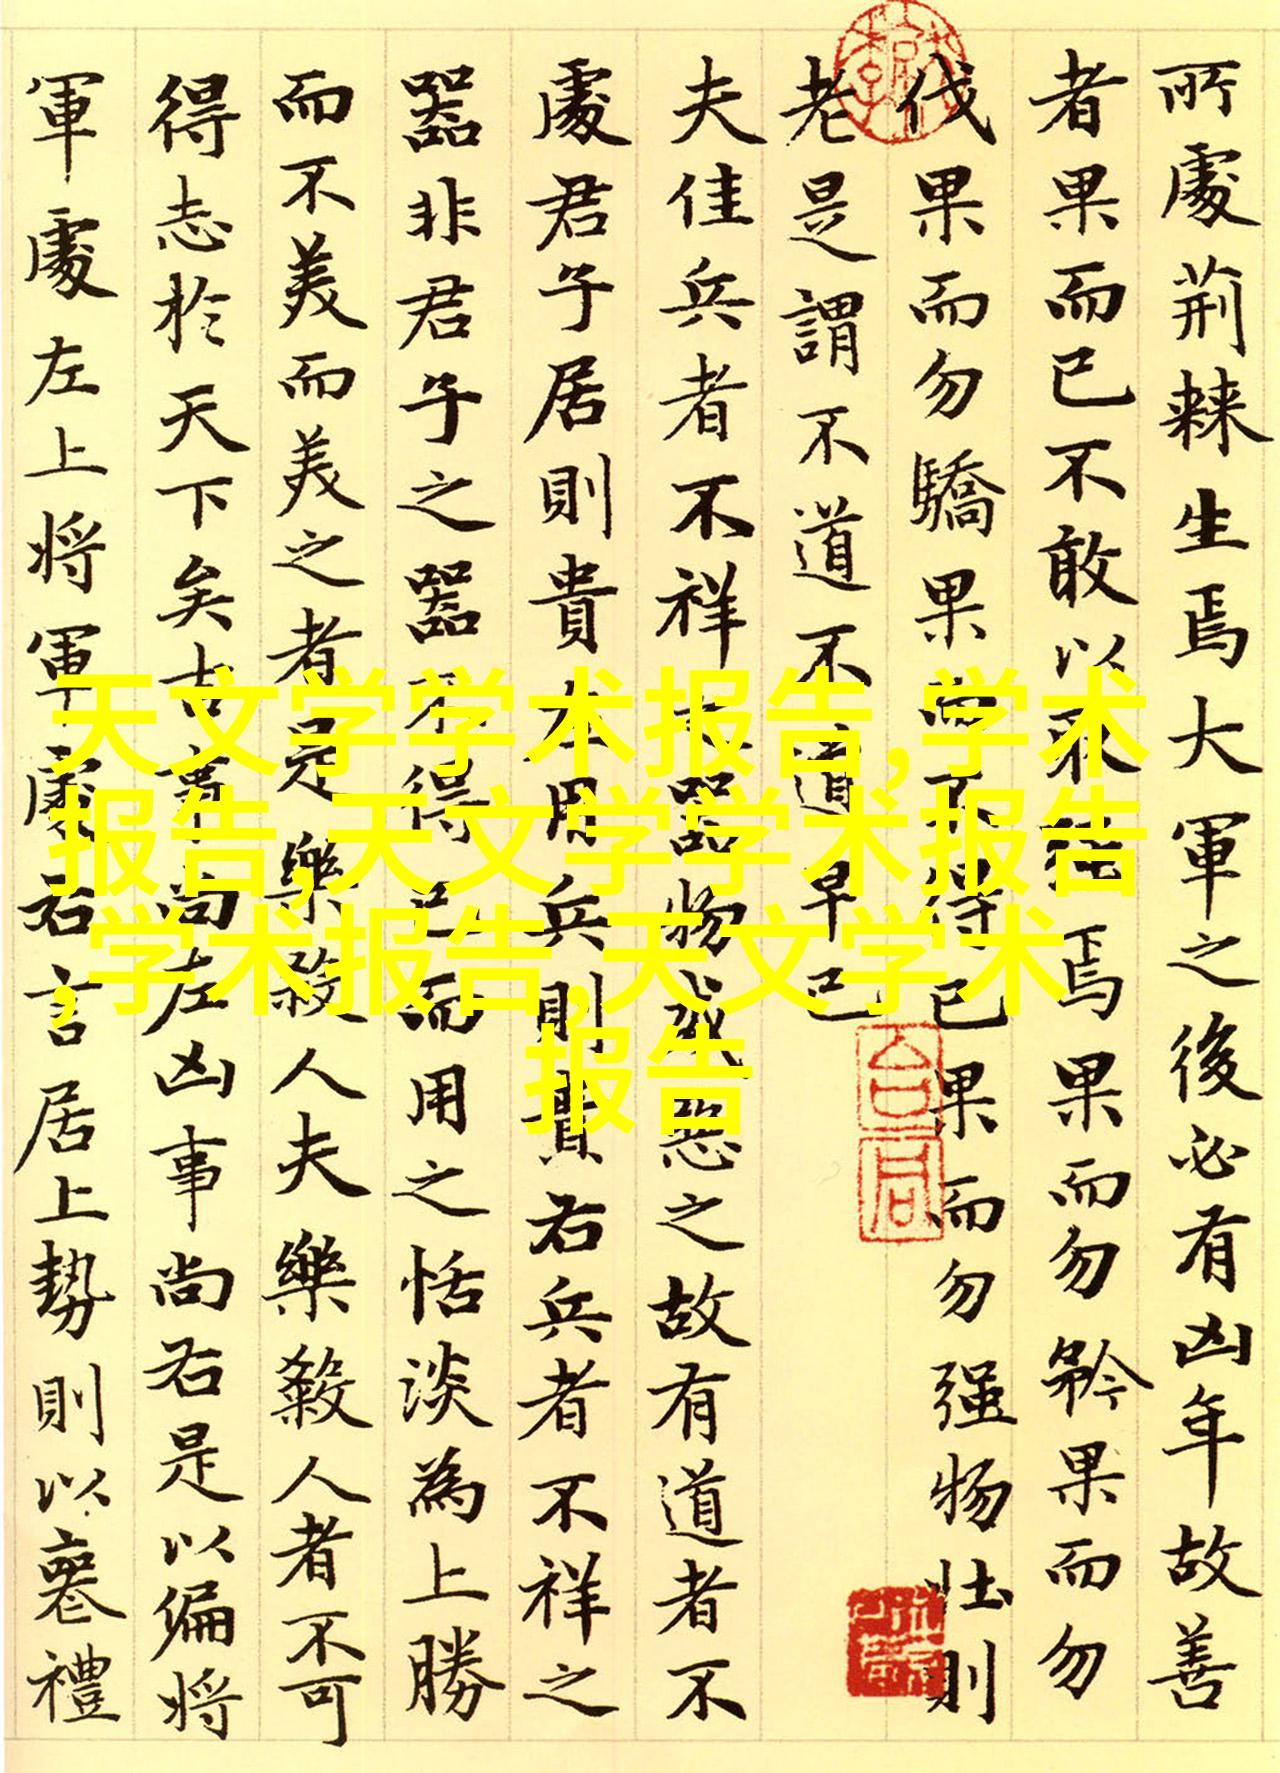 所處荊棘生焉大軍之後必有凶年故善
者果而已不敢以取強焉果而勿矜果而勿
伐果而勿驕果而不得已果而勿强物壮則
老是謂不道不道早已
夫佳兵者不祥之器物或惡之故有道者不
處君子居則貴左用兵則貴右兵者不祥之
噐非君子之噐不得已而用之恬淡為上勝
而不美而美之者是樂殺人夫樂殺人者不可
得志於天下矣吉事尚左凶事尚右是以偏將
軍處左上將軍處右言居上勢則以喪禮
天文学学术报告,学术
报告,天文学学术报告
,学术报告,天文学术
报告